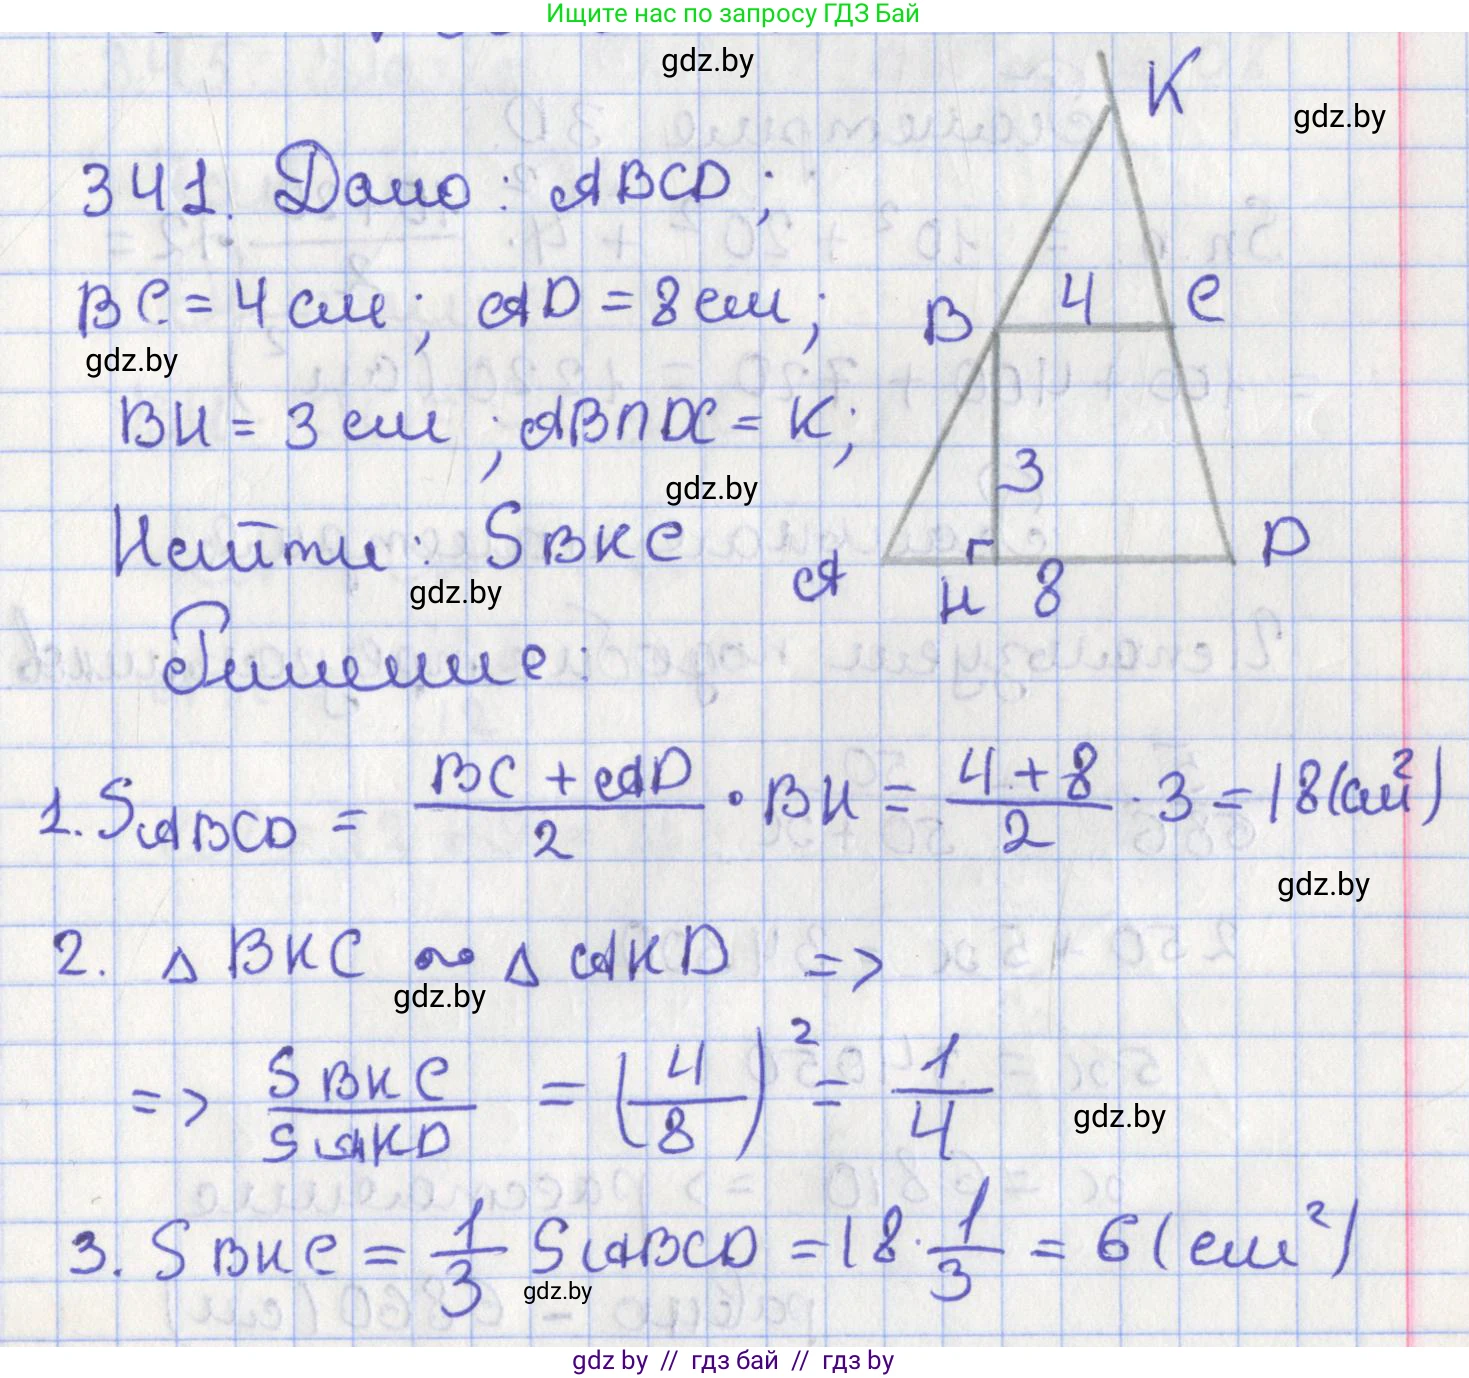 Ищите нас по запросу ГДЗ Бай
gdz.by
K
gdz.by
341. Дано: ABCD;
BC = 4 см; AD = 8 см;
B 4 C
gdz.by
BH = 3 см; AB∩DC = K;
3
gdz.by
Найти: SBKC
A H 8 D
gdz.by
Решение:
1. SABCD = (BC + AD)/2 · BH = (4 + 8)/2 · 3 = 18 (см²)
gdz.by
2. △ BKC ∼ △ AKD =>
gdz.by
=> SBKC/SAKD = (4/8)² = 1/4
gdz.by
3. SBKC = 1/3 SABCD = 18 · 1/3 = 6 (см²)
gdz.by
gdz by // гдз бай // гдз by